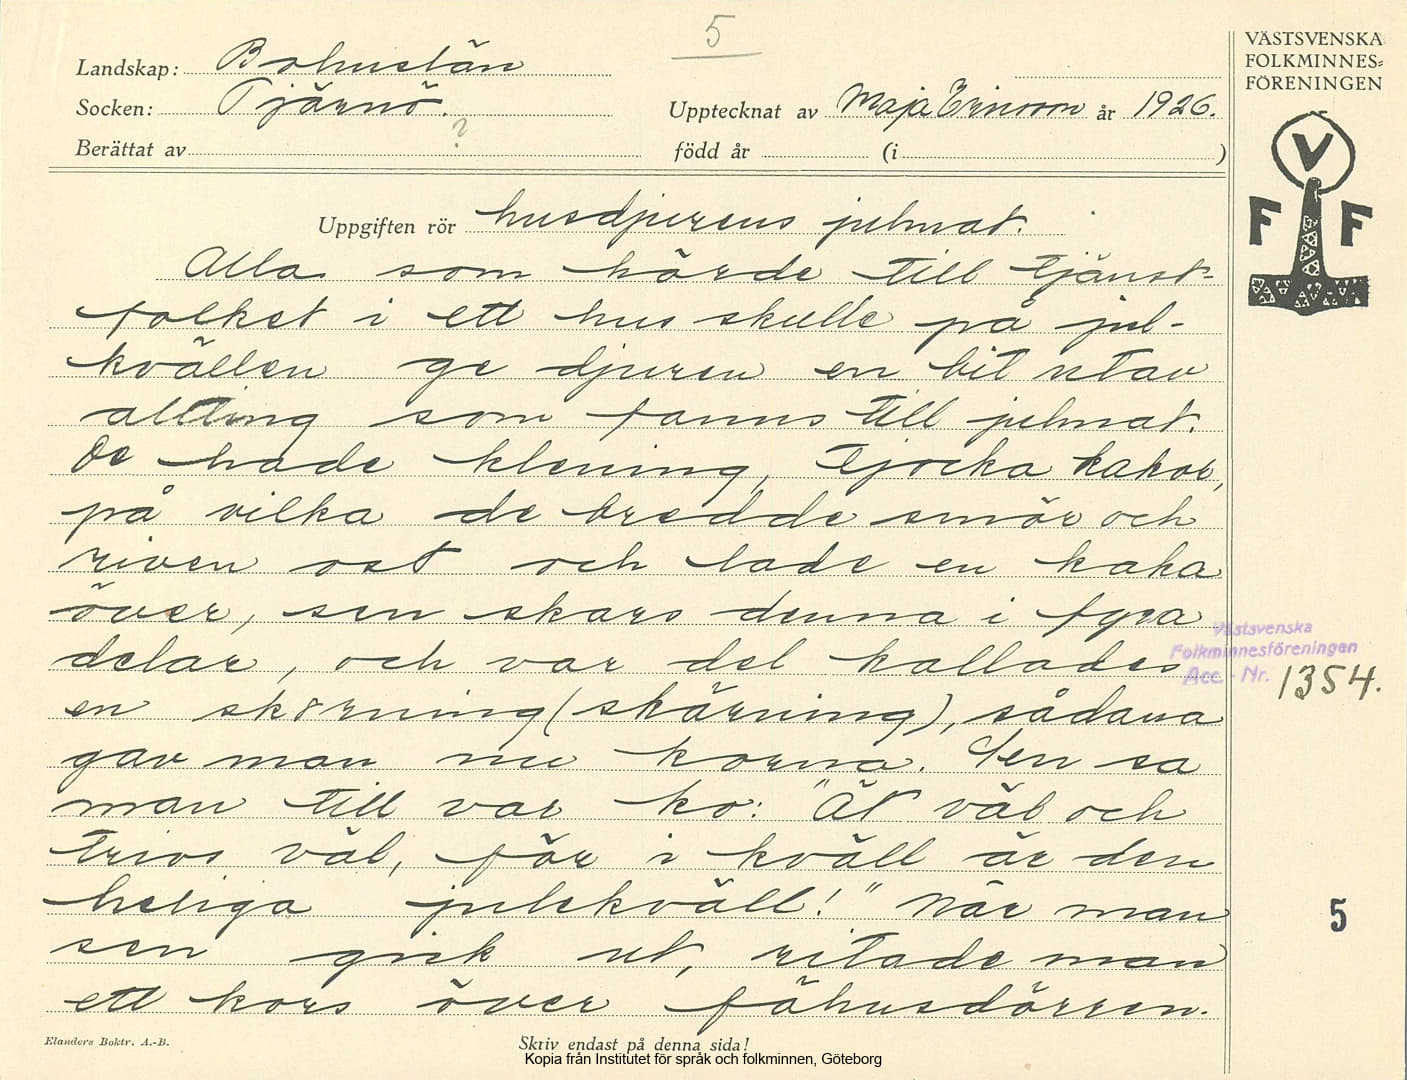 5
Landskap: Bohuslän
Socken: Tjärnö. Upptecknat av Maja Ericson år 1926.
?
Berättat av född år (i )
Uppgiften rör husdjurens julmat.
Alla som hörde till tjänst-
folket i ett hus skulle på jul-
kvällen ge djuren en bit utav
allting som fanns till julmat.
De hade klening, tjocka kakor,
på vilka de bredde smör och
riven ost och lade en kaka
över, sen skars denna i fyra
delar, och var del kallades
en skørning (skärning), sådana
gav man nu korna. Sen sa
man till var ko: "Ät väl och
trivs väl, för i kväll är den
heliga julekväll!" När man
sen gick ut, ritade man
ett kors över fähusdörren.
Elanders Boktr. A.-B.
Skriv endast på denna sida!
Kopia från Institutet för språk och folkminnen, Göteborg
VÄSTSVENSKA
FOLKMINNES=
FÖRENINGEN
V
F F
Västsvenska
Folkminnesföreningen
Acc. - Nr. 1354.
5